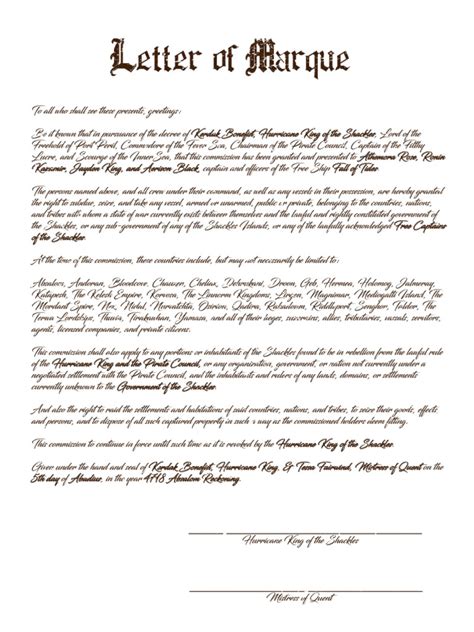 Letter of Marque
To all who shall see these presents, greetings:
Be it known that in pursuance of the decree of Kerdak Bonefist, Hurricane King of the Shackles, Lord of the
Freehold of Port Peril, Commodore of the Fever Sea, Chairman of the Pirate Council, Captain of the Filthy
Lucre, and Scourge of the Inner Sea, that this commission has been granted and presented to Rose, Ronin
Jayden King, and Black, captain and officers of the Free Ship Fall of Tides.
The persons named above, and all crew under their command, as well as any vessels in their possession, are hereby granted
the right to subdue, seize, and take any vessel, armed or unarmed, public or private, belonging to the countries, nations,
and tribes with whom a state of war currently exists between themselves and the lawful and rightly constituted government of
the Shackles, or any sub-government of any of the Shackles Islands, or any of the lawfully acknowledged Free Captains
of the Shackles.
At the time of this commission, these countries include, but may not necessarily be limited to:
Absalom, Andoran, Bloodcove, Cheliax, Droon, Geb, Hermea, Holomog, Jalmeray,
Katapesh, The Kelesh Empire, Korvosa, The Linnorm Kingdoms, Magnimar, Mediogalti Island, The
Mordant Spire, Nex, Nidal, Osirion, Qadira, Rahadoum, Senghor, Taldor, The
and all of their liege, suzerains, allies, tributaries, vassals, servitors,
agents, licensed companies, and private citizens.
This commission shall also apply to any portions or inhabitants of the Shackles found to be in rebellion from the lawful rule
of the Hurricane King and the Pirate Council, or any organization, government, or nation not currently under a
negotiated settlement with the Pirate Council, and the inhabitants and rulers of any lands, domains, or settlements
currently unknown to the Government of the Shackles.
And also the right to raid the settlements and habitations of said countries, nations, and tribes, to seize their goods, effects
and persons, and to dispose of all such captured property in such a way as the commissioned holders deem fitting.
This commission to continue in force until such time as it is revoked by the Hurricane King of the Shackles.
Given under the hand and seal of Kerdak Bonefist, Hurricane King, & Tessa Fairwind, Mistress of Quent on the
5th day of Abadius, in the year 4718 Absalom Reckoning.
Hurricane King of the Shackles
Mistress of Quent